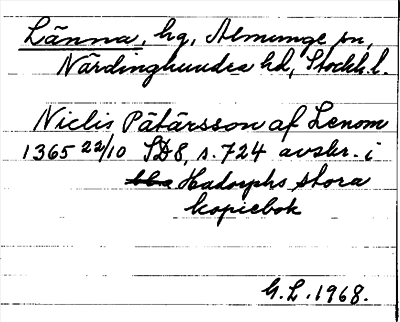 Länna, hg, Almunge sn,
Närdinghundra hd, Stockh. l.
Niclis Pätärsson af Lenom
1365 22/10 SD8, s. 724 avskr. i
Hadorphs stora
kopiebok
G.L. 1968.